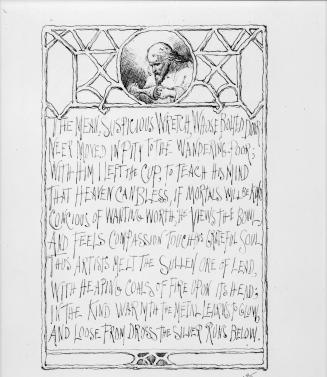 THE MEAN, SUSPICIOUS WRETCH, WHOSE BOLTED DOOR
NE'ER MOVED IN PITY TO THE WANDERING POOR;
WITH HIM I LEFT THE CUP, TO TEACH HIS MIND
THAT HEAVEN CAN BLESS, IF MORTALS WILL BE KIND
CONCIOUS OF WANTING WORTH, HE VIEWS THE BOWL
AND FEELS COMPASSION TOUCH HIS GRATEFUL SOUL
THUS ARTISTS MELT THE SULLEN ORE OF LEAD,
WITH HEAPING COALS OF FIRE UPON ITS HEAD;
IN THE KIND WARMTH THE METAL LEARNS TO GLOW,
AND LOOSE FROM DROSS THE SILVER RUNS BELOW.